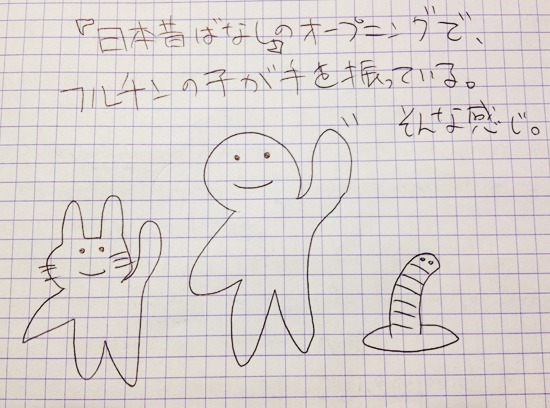 『日本昔ばなし』のオープニングで、
フルチンの子が手を振っている。
そんな感じ。